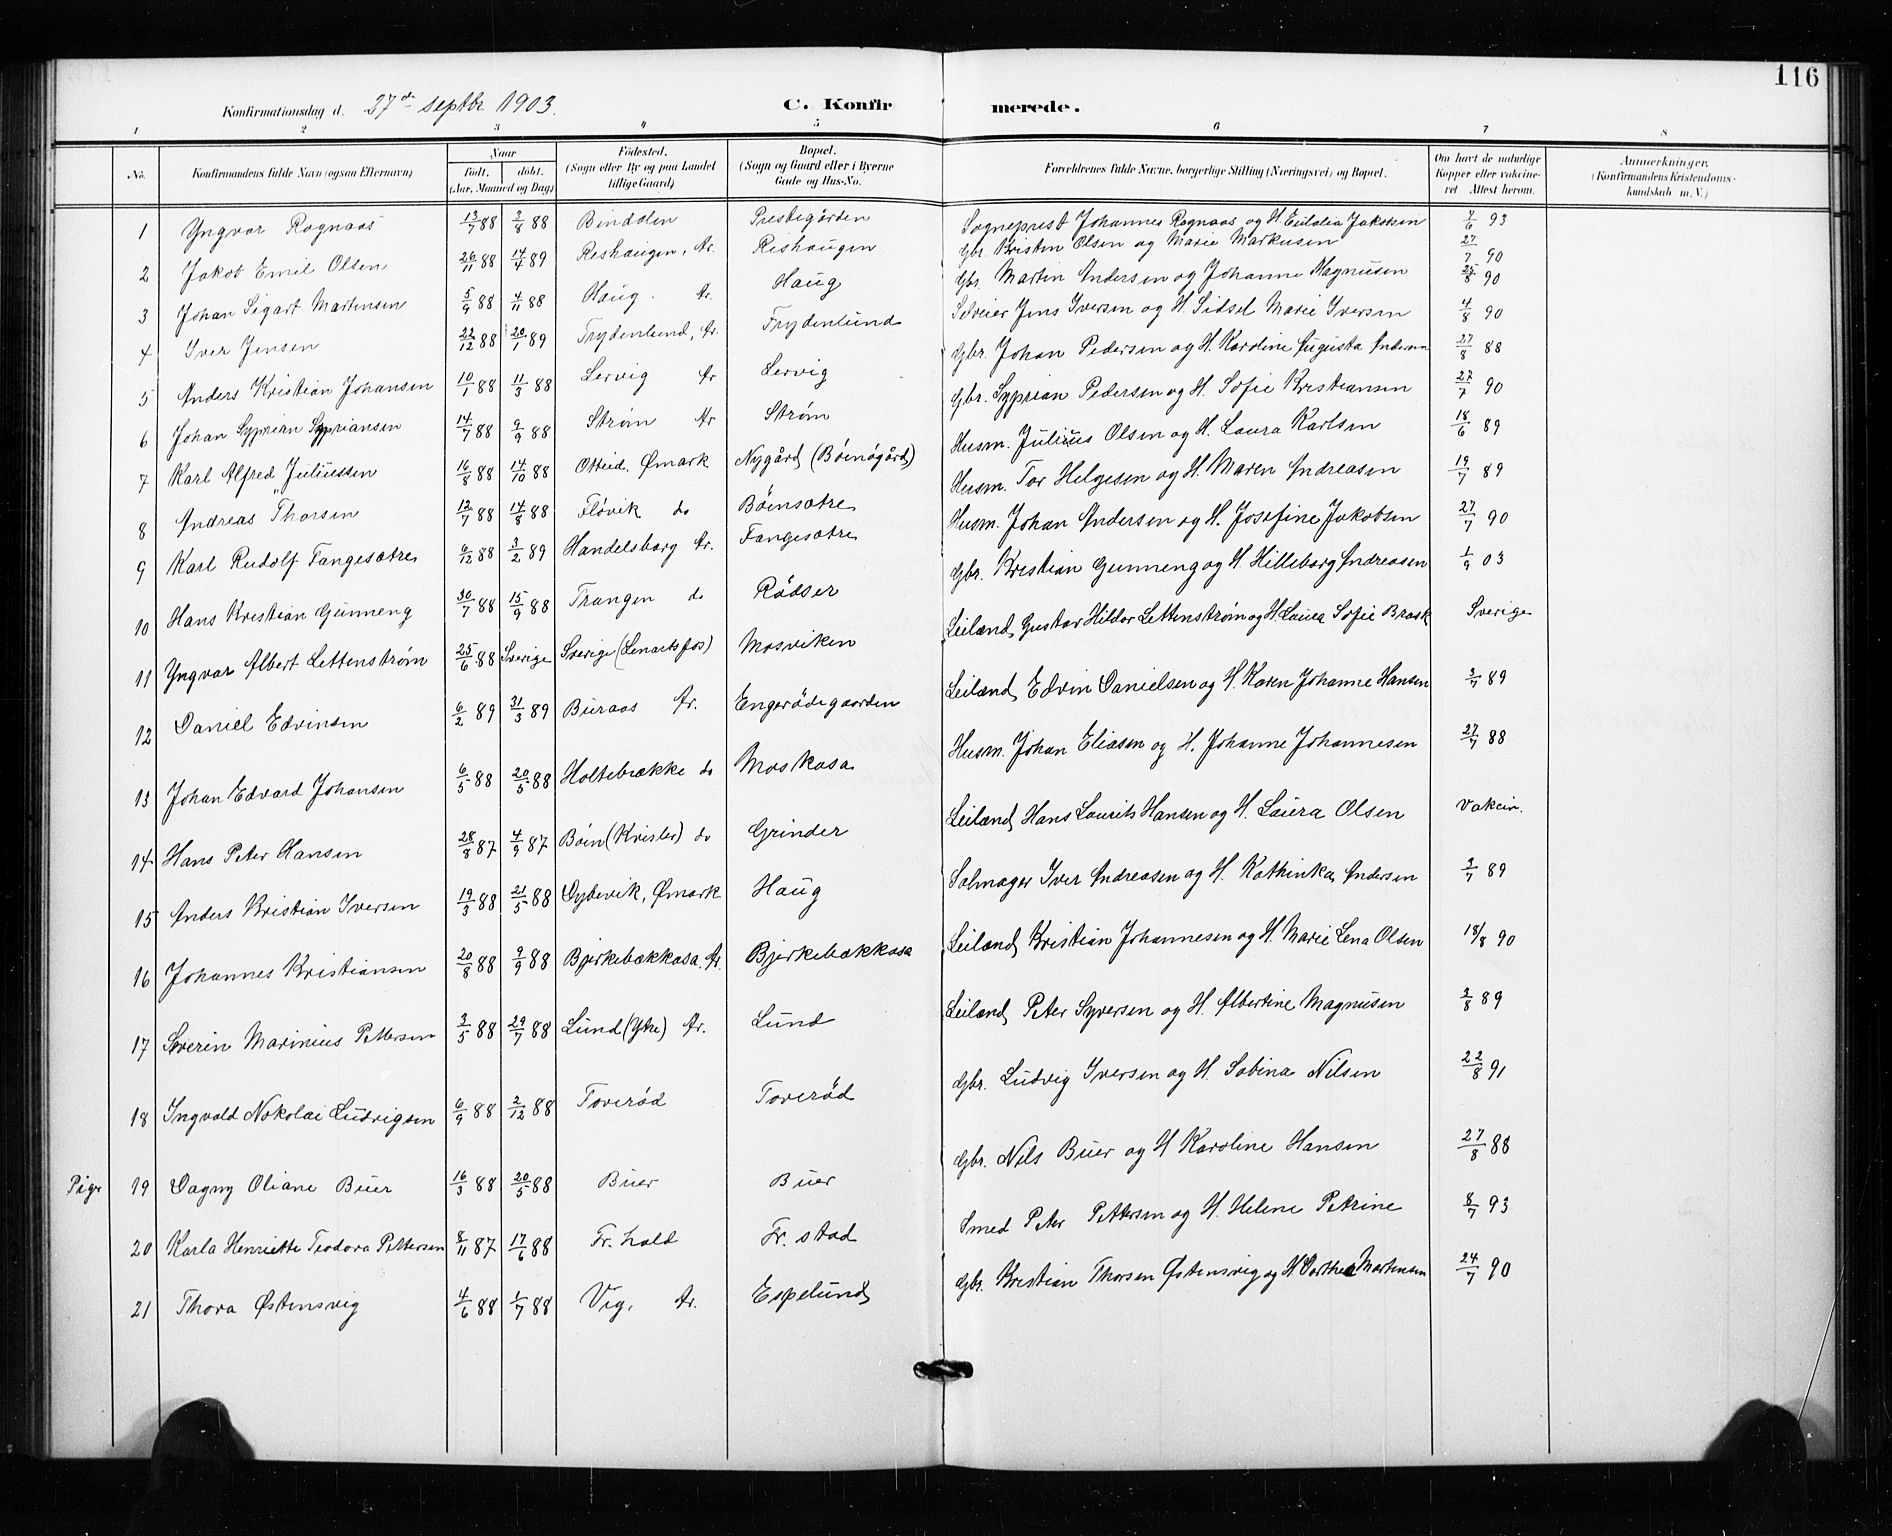 116
Konfirmationsdag d. 27de septbr. 1903. C. Konfirmerede.
1 2 3 4 5 6 7 8
No. Konfirmandens fulde Navn (ogsaa Efternavn) Naar født, døbt. (Aar, Maaned og Dag) Fødested. (Sogn eller By og paa Landet tillige Gaard) Bopæl. (Sogn og Gaard eller i Byerne Gade og Hus-No. Forældrenes fulde Navne, borgerlige Stilling (Næringsvei) og Bopæl. Om havt de naturlige Kopper eller vakcineret Attest herom. Anmærkninger. (Konfirmandens Kristendomskundskab m. V.)
1 Yngvar Rognaas 13/7 88 2/8 88 Bindalen Prestegården Sogneprest Johannes Rognaas og H. Eulalia Jakobsen 7/6 93
2 Jakob Emil Olsen 26/11 88 14/4 89 Reshaugen, Ar. Reshaugen Gbr. Kristen Olsen og Marie Markusen 27/7 90
3 Johan Sigart Martensen 5/9 88 4/11 88 Haug Ar. Haug Gbr. Martin Andersen og Johanne Magnusen 25/8 90
4 Iver Jensen 22/12 88 20/1 89 Frydenlund, Ar. Frydenlund Selveier Jens Iversen og H. Sidsel Marie Iversen 4/8 90
5 Anders Kristian Johansen 10/1 88 11/3 88 Lervig Ar Lervig Gbr. Johan Pedersen og H. Karoline Augusta Andersen 27/8 88
6 Johan Syprian Sypriansen 14/7 88 9/9 88 Strøm Ar Strøm Gbr. Syprian Pedersen og H. Sofie Kristiansen 27/7 90
7 Karl Alfred Juliussen 16/8 88 14/10 88 Otteid, Ømark Nygård (Bøensgård) Husm. Julius Olsen og H. Laura Karlsen 18/6 89
8 Andreas Thorsen 12/7 88 14/8 88 Fløvik do Bøensætre Husm. Tor Helgesen og H. Maren Andreasen 19/7 89
9 Karl Rudolf Fangesætre 6/12 88 3/2 89 Handelsborg Ar. Fangesætre Husm. Johan Andersen og H. Josefine Jakobsen 27/7 90
10 Hans Kristian Gunneng 30/7 88 15/9 88 Trangen do Rødser Gbr. Kristian Gunneng og H. Hilleborg Andreasen 1/9 03
11 Yngvar Albert Lettenstrøm 25/6 88 Sverige Sverige (Lenartsfos) Mosviken Leilænd. Gustav Hildor Lettenstrøm og H. Laura Sofie Brask Sverige
12 Daniel Edvinsen 6/2 89 31/3 89 Buraas Ar. Engerødegaarden Leilænd. Edvin Danielsen og H. Karen Johanne Hansen 3/7 89
13 Johan Edvard Johansen 6/5 88 20/5 88 Holtebrække do Moskasa Husm. Johan Eliasen og H. Johanne Johannesen 27/7 88
14 Hans Peter Hansen 28/8 87 4/9 87 Bøen (Krister) do Grinder Leilænd. Hans Laurits Hansen og H. Laura Olsen Vakcin.
15 Anders Kristian Iversen 19/3 88 21/5 88 Dybevik, Ømark Haug Salmager Iver Andreasen og H. Kathinka Andersen 3/7 89
16 Johannes Kristiansen 20/8 88 9/9 88 Bjerkebækkasa, Ar. Bjerkebækkasa Leilænd. Kristian Johannesen og H. Marie Lena Olsen 18/8 90
17 Severin Marinius Pettersen 3/5 88 29/7 88 Lund (Ytre) Ar. Lund Leilænd. Peter Syversen og H. Albertine Magnusen 3/8 89
18 Ingvald Nokolai Ludvigsen 6/9 88 2/12 88 Toverød Toverød Gbr. Ludvig Iversen og H. Sabina Nilsen 22/8 91
Piger 19 Dagny Oliane Buer 16/3 88 20/5 88 Buer Buer Gbr. Nils Buer og H Karoline Hansen 27/8 88
20 Karla Henriette Teodora Pettersen 8/11 87 17/6 88 Fr. hald Fr. stad Smed Peter Pettersen og H. Helene Petrine 8/7 93
21 Thora Østensvig 4/6 88 1/7 88 Vig, Ar. Espelund Gbr. Kristian Thorsen Østensvig og H Dorthea Martensen 24/7 90